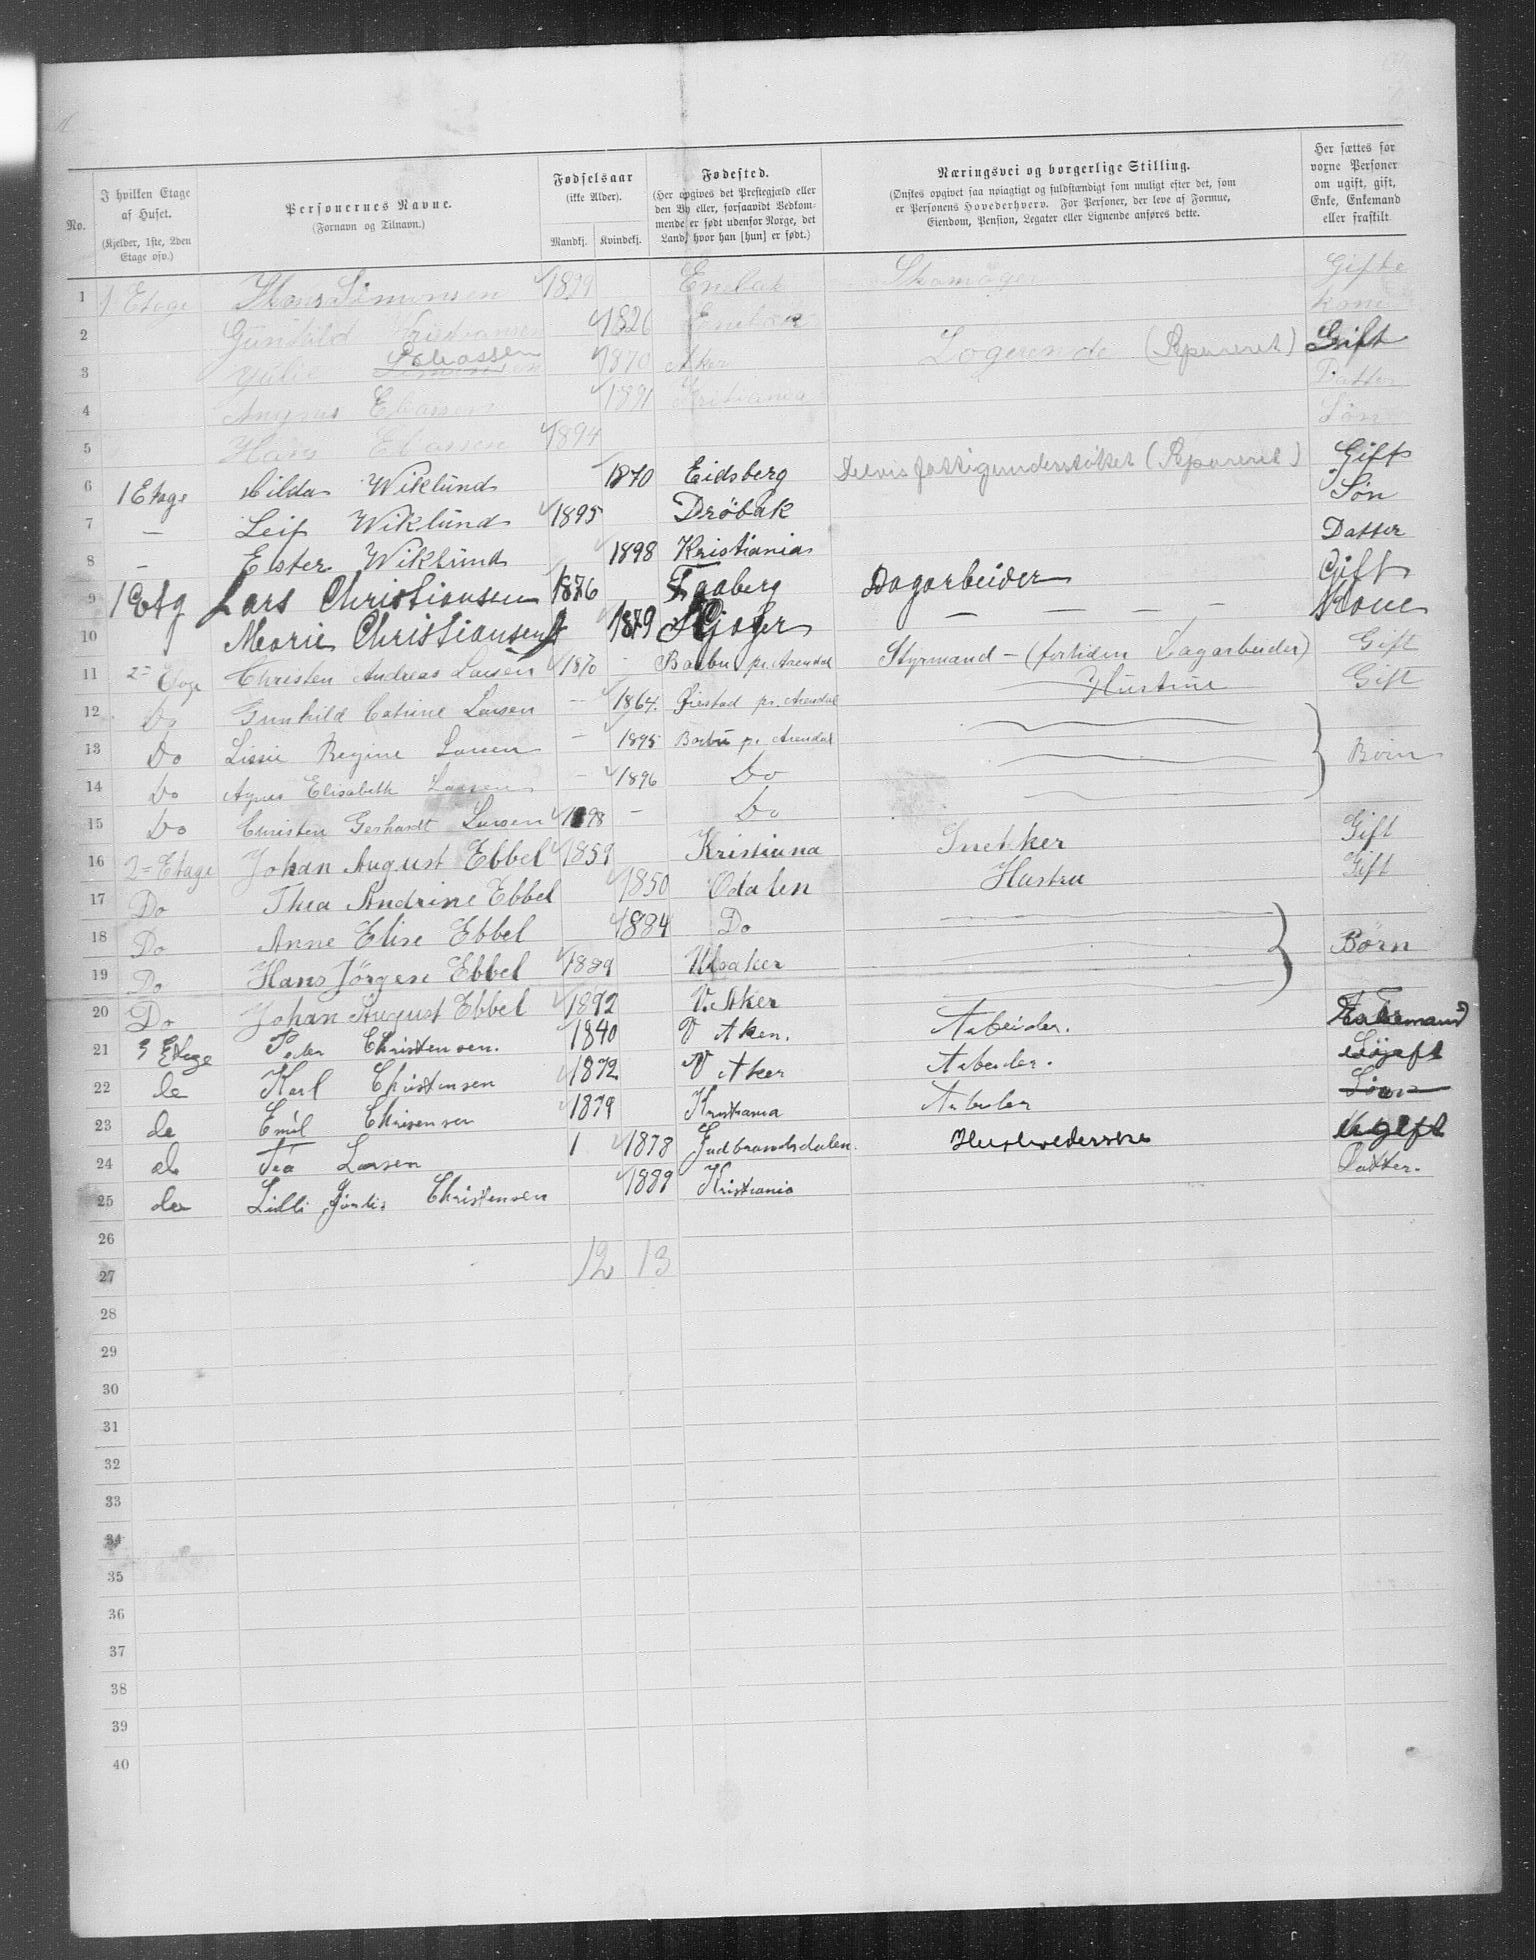 No.
I hvilken Etage af Huset.
(Kjelder, 1ste, 2den Etage osv.)
Personernes Navne.
(Fornavn og Tilnavn.)
Fødselsaar
(ikke Alder).
Mandkj. Kvindekj.
Fødested.
(Her opgives det Prestegjæld eller den By eller, forsaavidt Vedkommende er født udenfor Norge, det Land, hvor han [hun] er født.)
Næringsvei og borgerlige Stilling.
(Ønskes opgivet saa nøiagtigt og fuldstændigt som muligt efter det, som er Personens Hovederhverv. For Personer, der leve af Formue, Eiendom, Pension, Legater eller Lignende anføres dette.
Her sættes for voxne Personer om ugift, gift, Enke, Enkemand eller fraskilt
1 1 Etage Hans Simonsen Enebak Skomager Gifte
2 Gunhild 1826 Enebak Kone
3 Eliassen 1870 Aker Logerende (Separeret) Gift
4 Eliassen 1891 Kristiania Datter
5 Hans Eliassen 1894 Søn
6 1 Etage Hilda Wiklund 1870 Eidsberg Delvis fattigunderstøttet (Separeret) Gift
7 — Leif Wiklund 1895 Drøbak Søn
8 — Ester Wiklund 1898 Kristiania Datter
9 1 Etg Lars Christiansen 1876 Faaberg Dagarbeider Gift
10 Marie Christiansen 1879 — — — — Kone
11 2- Etage Christen Andreas Larsen 1870 — Barbu pr. Arendal Styrmand — (fortiden Lagarbeider) Gift
12 Do Gunhild Catrine Larsen — 1864. Øiestad pr. Arendal Hustrue Gift
13 Do Lissie Regine Larsen — 1895 Barbu pr. Arendal
14 Do Agnes Elisabeth Larsen — 1896 Do Børn
15 Do Christen Gerhardt Larsen 1898 — Do
16 2- Etage Johan August Ebbel 1859 Kristiana Snekker Gift
17 Do Thea Andrine Ebbel 1850 Odalen Hustru Gift
18 Do Anne Elise Ebbel 1884 Do
19 Do Hans Jörgen Ebbel 1889 Børn
20 Do Johan August Ebbel 1892 V. Aker
21 3 Etage Peder Christensen. 1840 V Aker. Arbeider. Enkemand
22 de Karl Christensen 1872 V Aker Arbeider.
23 de Emil 1879 Kristiania Arbeider
24 de Tea Larsen 1 1878 Gudbrandsdalen. Ugift
25 de Lilli Christensen 1889 Kristiania Datter.
26
27 12 13
28
29
30
31
32
33
34
35
36
37
38
39
40